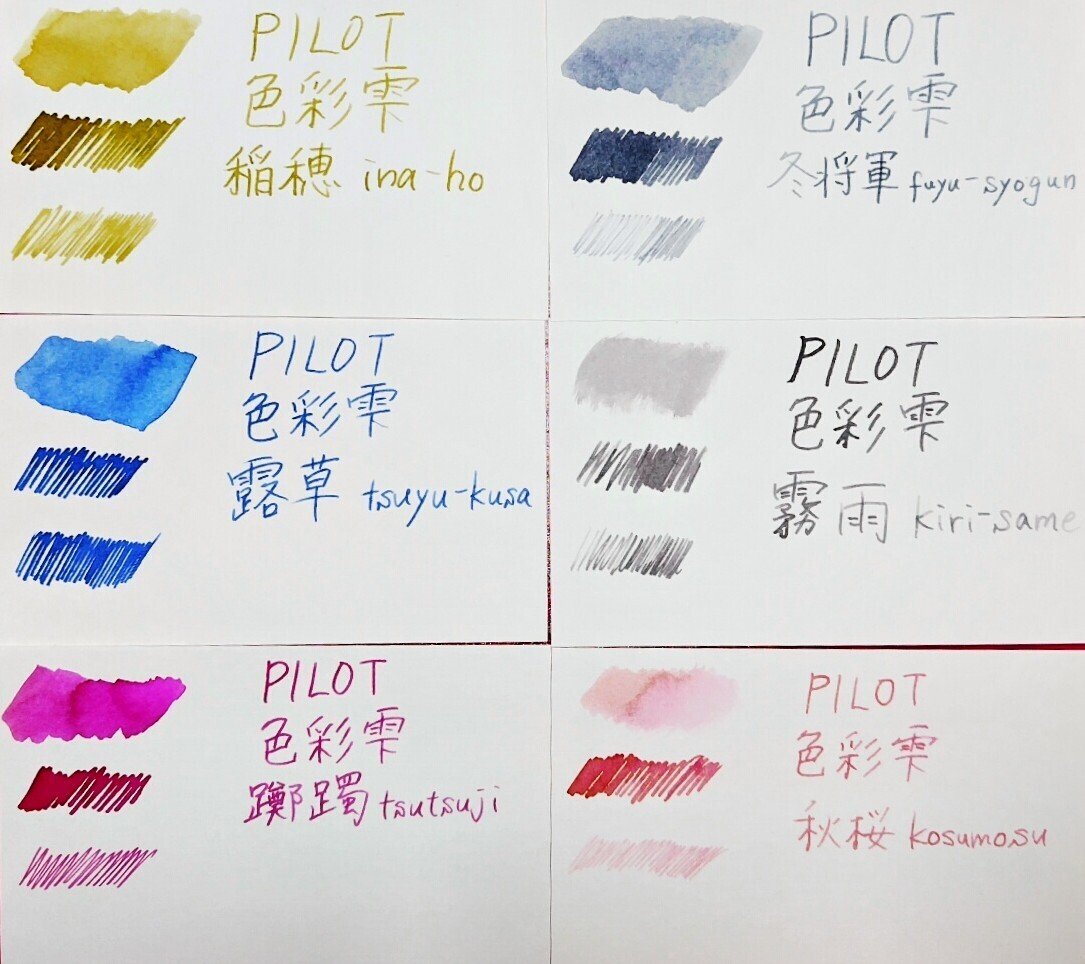 PILOT
色彩雫
稲穂 ina-ho
PILOT
色彩雫
冬将軍 fuyu-syogun
PILOT
色彩雫
露草 tsuyu-kusa
PILOT
色彩雫
霧雨 kiri-same
PILOT
色彩雫
躑躅 tsutsuji
PILOT
色彩雫
秋桜 kosumosu